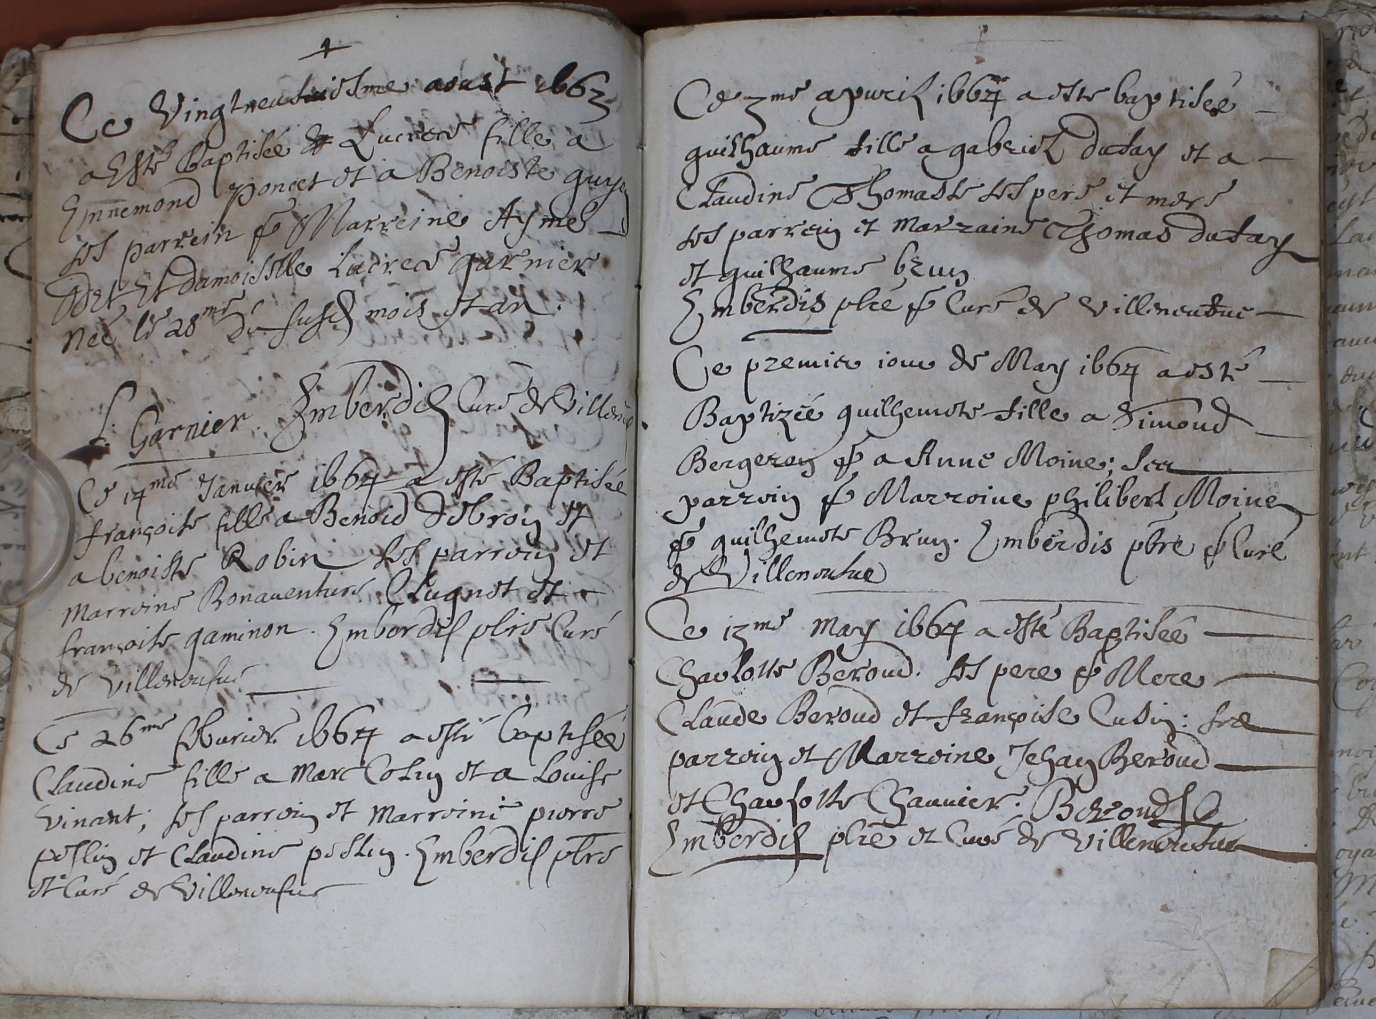 Ce Vingtneufuiesme aoust 1663
a Esté Baptisée Lucrece fille a
Ennemond Poncet et a Benoiste guyo
ses parrein & Marreine Aymé
Odet Et damoiselle Lucrece garnier
Neé le 28me du susd mois et an.
L. Garnier. Emberdis Curé de Villeneu
Ce 14me Janvier 1664 a esté Baptisée
françoise fille a Benoid Debroin et
a benoiste Robin ses parroin et
marroine Bonaventure Clugnet et
françoise gaminon. Emberdis pbre Curé
de Villeneufue
Ce 26me feburier 1664 a esté baptisée
Claudine fille a Marc Colin et a Louise
vinant; ses parroin et marroine pierre
peslin et Claudine peslin. Emberdis pbre
et Curé de Villeneufue
Ce 3me apuril 1664 a este baptiseé
guilhaume fille a gabriel dufay et a
Claudine Thomasse ses pere et mere
ses parroin et marraine Thomas dufay
et guilhaume brun
Emberdis pbre & Curé de Villeneufue
Ce premier iour de May 1664 a esté
Baptizée guilhemete fille a Simond
Bergeron & a Anne Moine; ses
parroin & Marroine philibert Moine
& guilhemete Brun. Emberdis pbre & Curé
de Villeneufue
Ce 13me May 1664 a esté Baptisée
Charlotte Beroud. ses pere & Mere
Claude Beroud et françoise Cusin: ses
parroin et Marroine Jehan Beroud
et Charlotte Chauvier. Beroud
Emberdis pbre et Curé de Villeneufue